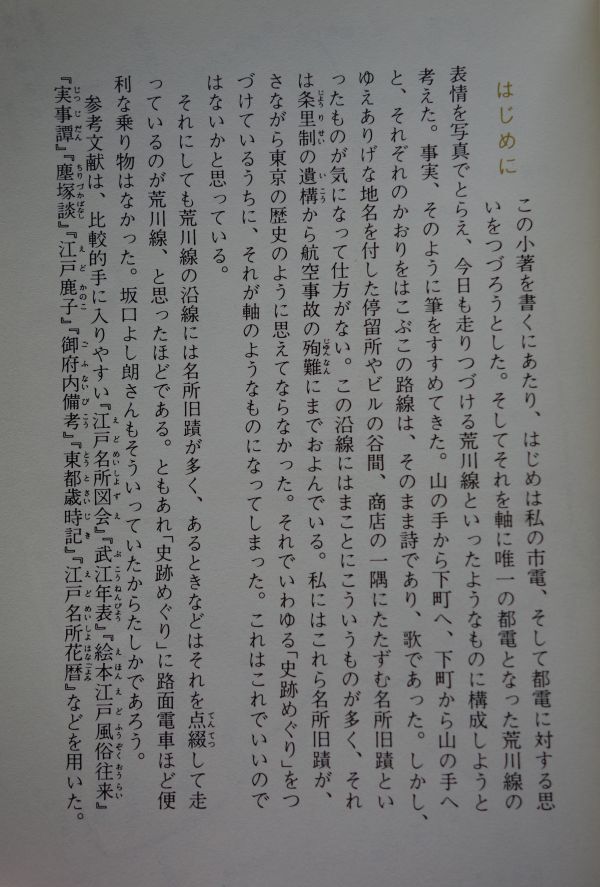 はじめに
この小著を書くにあたり、はじめは私の市電、そして都電に対する思
いをつづろうとした。そしてそれを軸に唯一の都電となった荒川線の
表情を写真でとらえ、今日も走りつづける荒川線といったようなものに構成しようと
考えた。事実、そのように筆をすすめてきた。山の手から下町へ、下町から山の手へ
と、それぞれのかおりをはこぶこの路線は、そのまま詩であり、歌であった。しかし、
ゆえありげな地名を付した停留所やビルの谷間、商店の一隅にたたずむ名所旧蹟とい
ったものが気になって仕方がない。この沿線にはまことにこういうものが多く、それ
は条里制の遺構から航空事故の殉難にまでおよんでいる。私にはこれら名所旧蹟が、
さながら東京の歴史のように思えてならなかった。それでいわゆる「史跡めぐり」をつ
づけているうちに、それが軸のようなものになってしまった。これはこれでいいので
はないかと思っている。
それにしても荒川線の沿線には名所旧蹟が多く、あるときなどはそれを点綴して走
っているのが荒川線、と思ったほどである。ともあれ「史跡めぐり」に路面電車ほど便
利な乗り物はなかった。坂口よし朗さんもそういっていたからたしかであろう。
参考文献は、比較的手に入りやすい『江戸名所図会』『武江年表』『絵本江戸風俗往来』
『実事譚』『塵塚談』『江戸鹿子』『御府内備考』『東都歳時記』『江戸名所花暦』などを用いた。